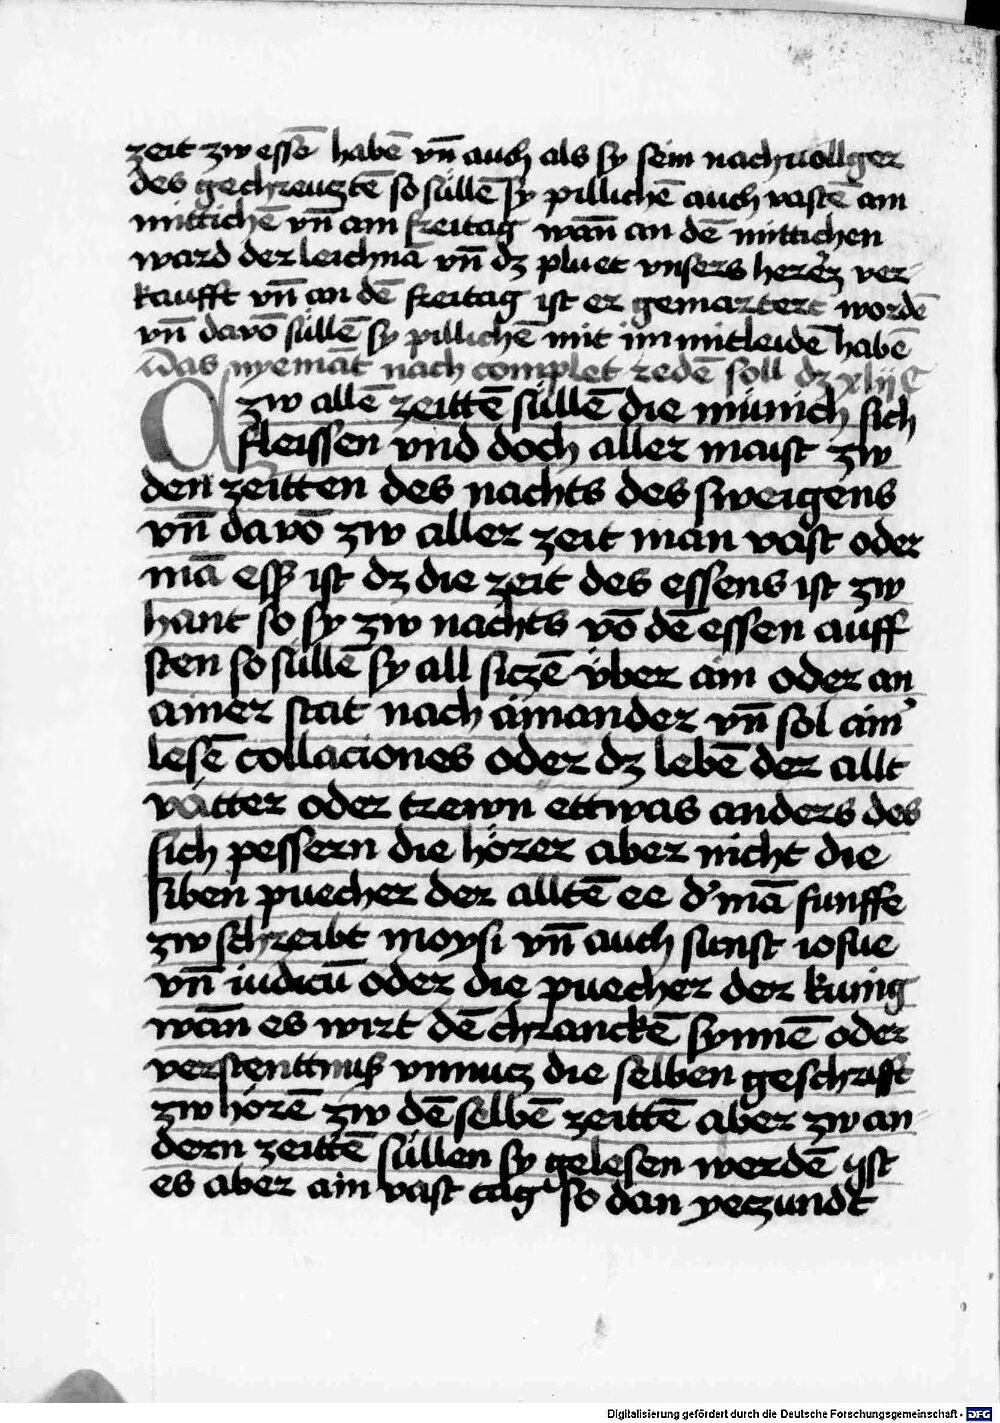 zeit zw essē habē vn̄ auch als sy sein nachuollger
des gechreuztē so sullē sy pillichē auch vastē am
mittichē vn̄ am freitag wan̄ an dē mittichen
ward der leichnā vn̄ dz pluet vnsers herrē ver-
kaufft vn̄ an dē freitag ist er gemartert wordē
vn̄ davō sullē sy pillichē mit im mitleidē habē
Das nyemāt nach complet redē soll dz xlij C
zw allē zeittē süllē die münich sich
fleissen vnd doch aller maist zw
den zeitten des nachts des sweigens
vn̄ davō zw aller zeit man vast oder
mā ess ist dz die zeit des essens ist zw
hant so sy zw nachts vō dē essen auff
sten so süllē sy all siczē über ain oder an
ainer stat nach ainander vn̄ sol ain'
lesē collaciones oder dz lebē der allt
vätter oder trewn ettwas anders des
sich pessern die hörer aber nicht die
siben puecher der alltē ee d' mā funffe
zw schreibt moysi vn̄ auch sunst iosue
vn̄ iudicū oder die puecher der kunig
wan̄ es wirt dē chranckē synnē oder
verstenttnuß vnnucz die selben geschrifft
zw hörē zw dē selbē zeittē aber zw an-
dern zeittē süllen sy gelesen werdē Ist
es aber ain vast tag so dan yeczundt
Digitalisierung gefördert durch die Deutsche Forschungsgemeinschaft - DFG